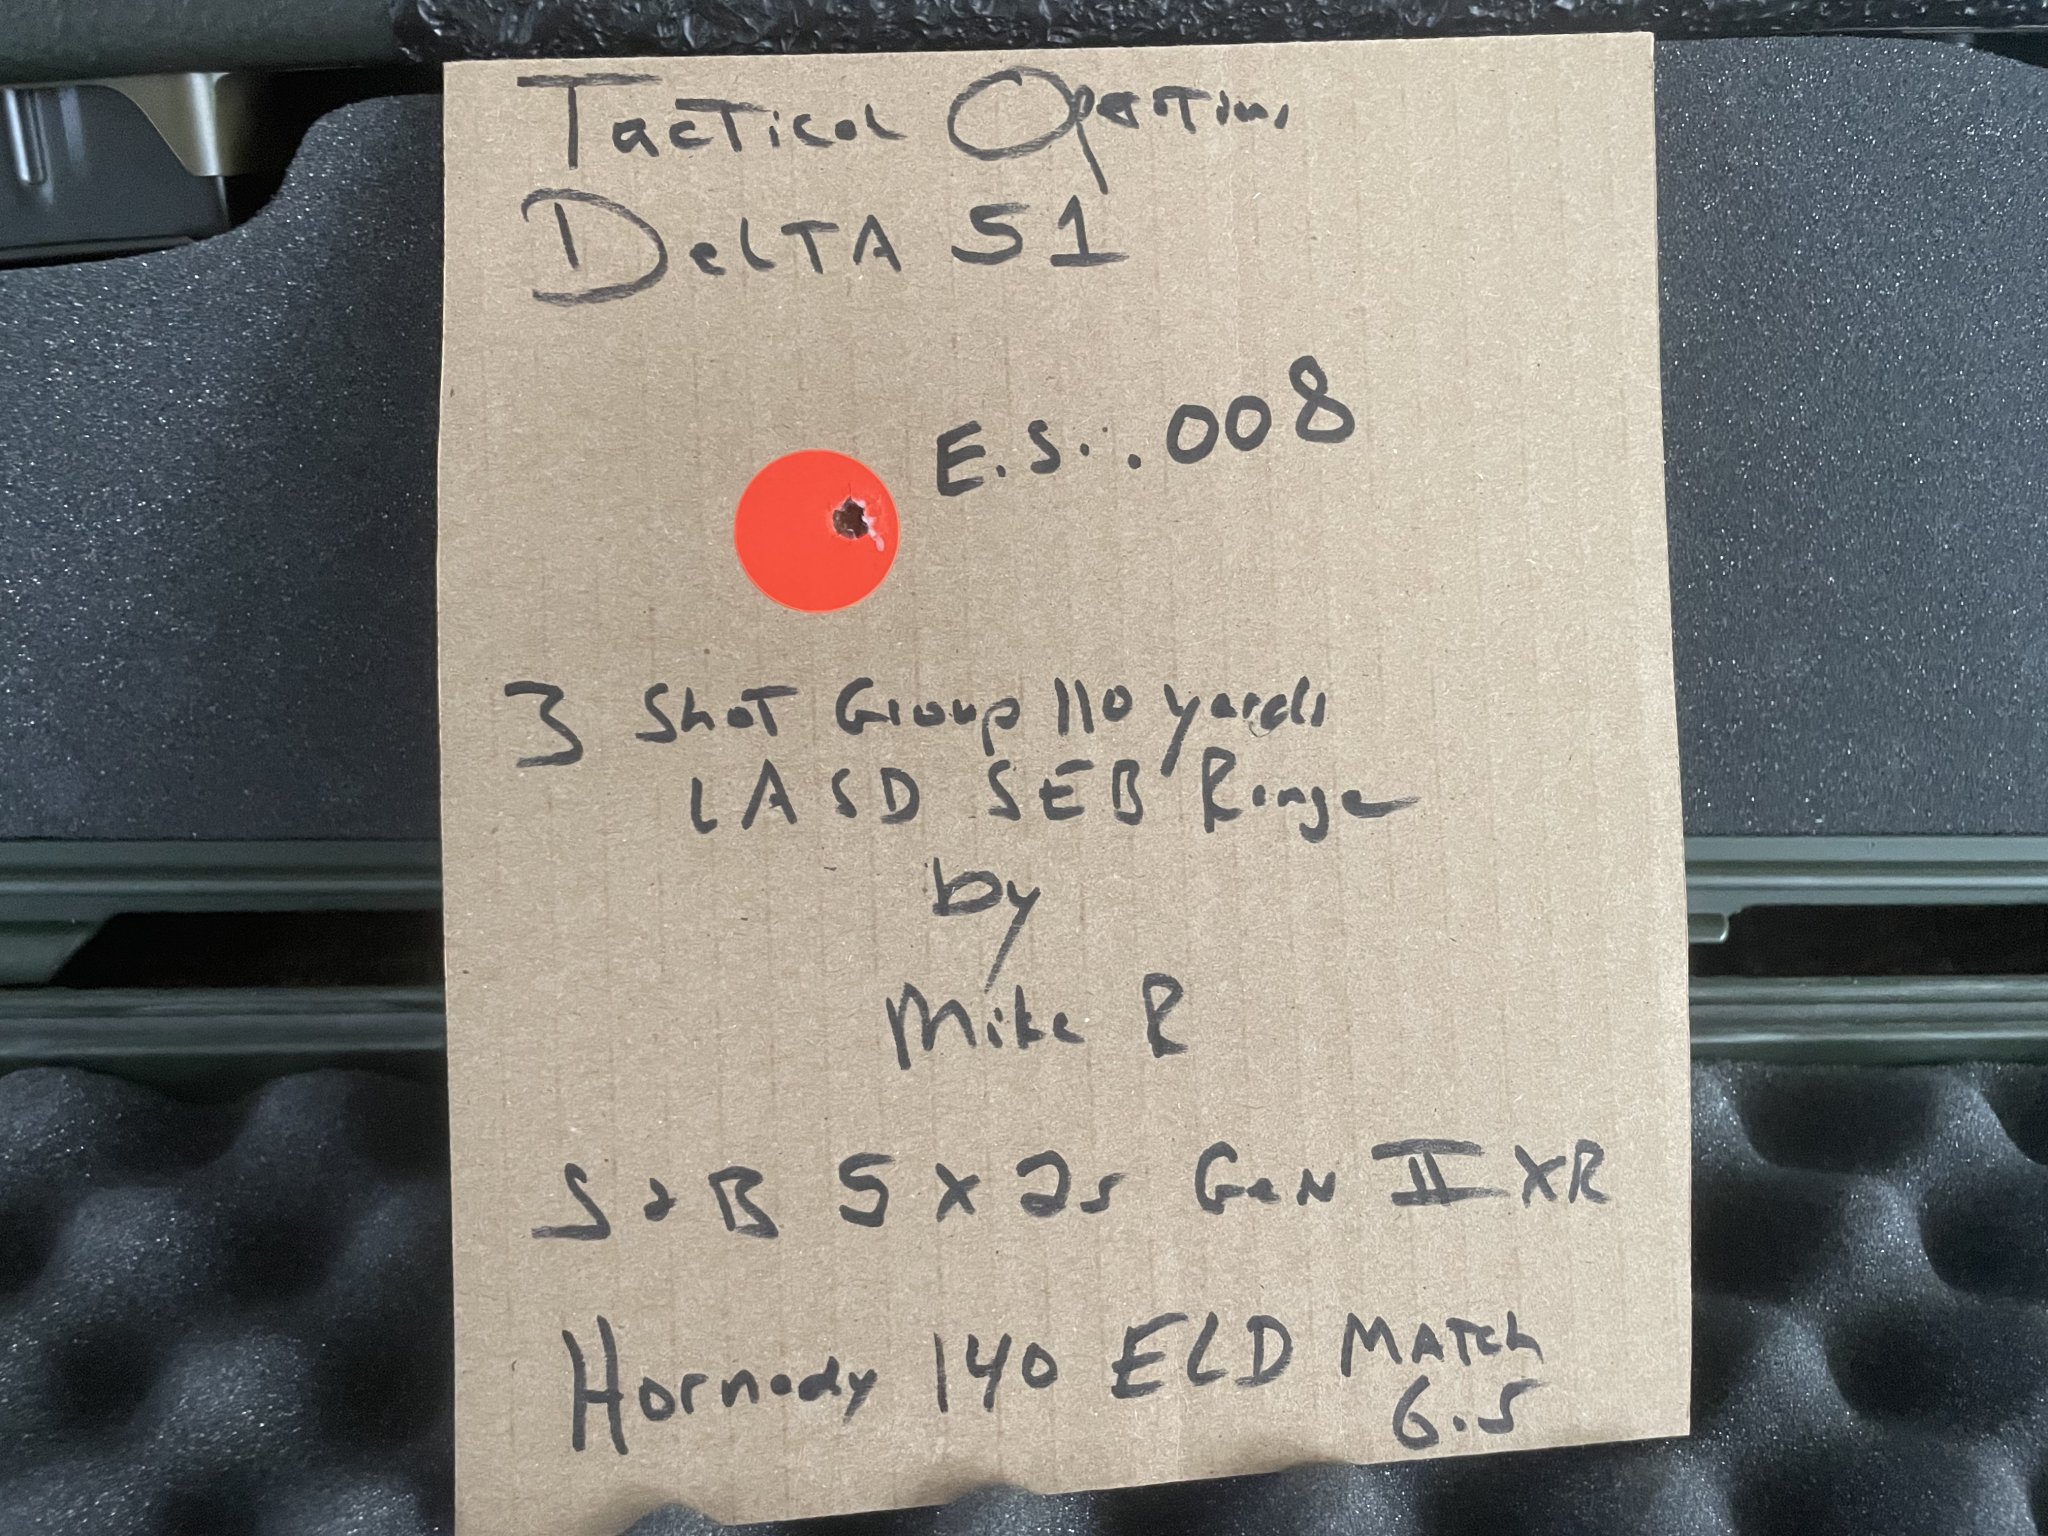 Tactical Operations
DelTA 51
E.S. .008
3 Shot Group 110 yards
LASD SEB Range
by
Mike R
S & B 5 x 25 Gen II XR
Hornady 140 ELD Match
6.5